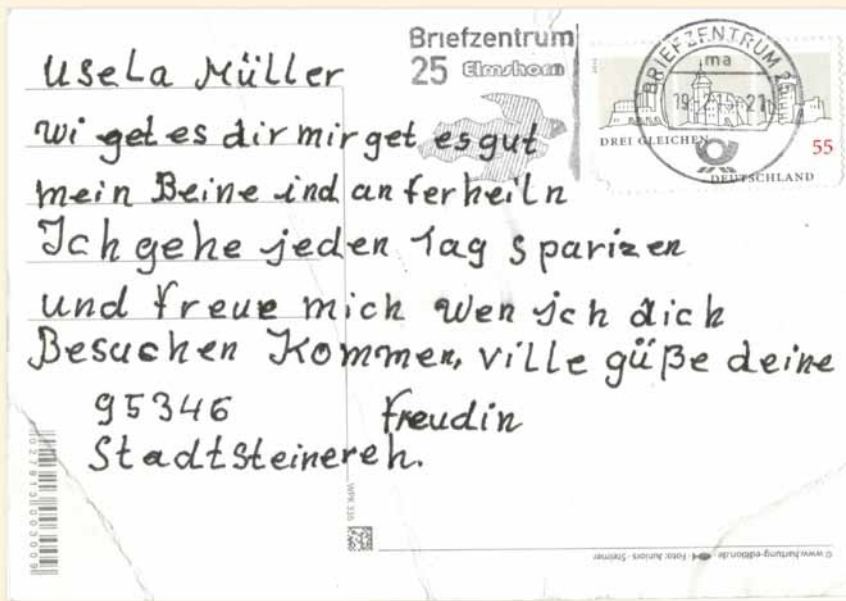 Briefzentrum
25 Elmshorn
BRIEFZENTRUM
ma
DREI GLEICHEN
55
DEUTSCHLAND
Usela Müller
wi get es dir mir get es gut
mein Beine ind an ferheiln
Ich gehe jeden Tag sparizen
und freue mich wen ich dich
Besuchen Kommen, ville güße deine
95346 freudin
Stadtsteinereh.
WPK 336
© www.hartung-edition.de · Foto: Juniors · Steimer